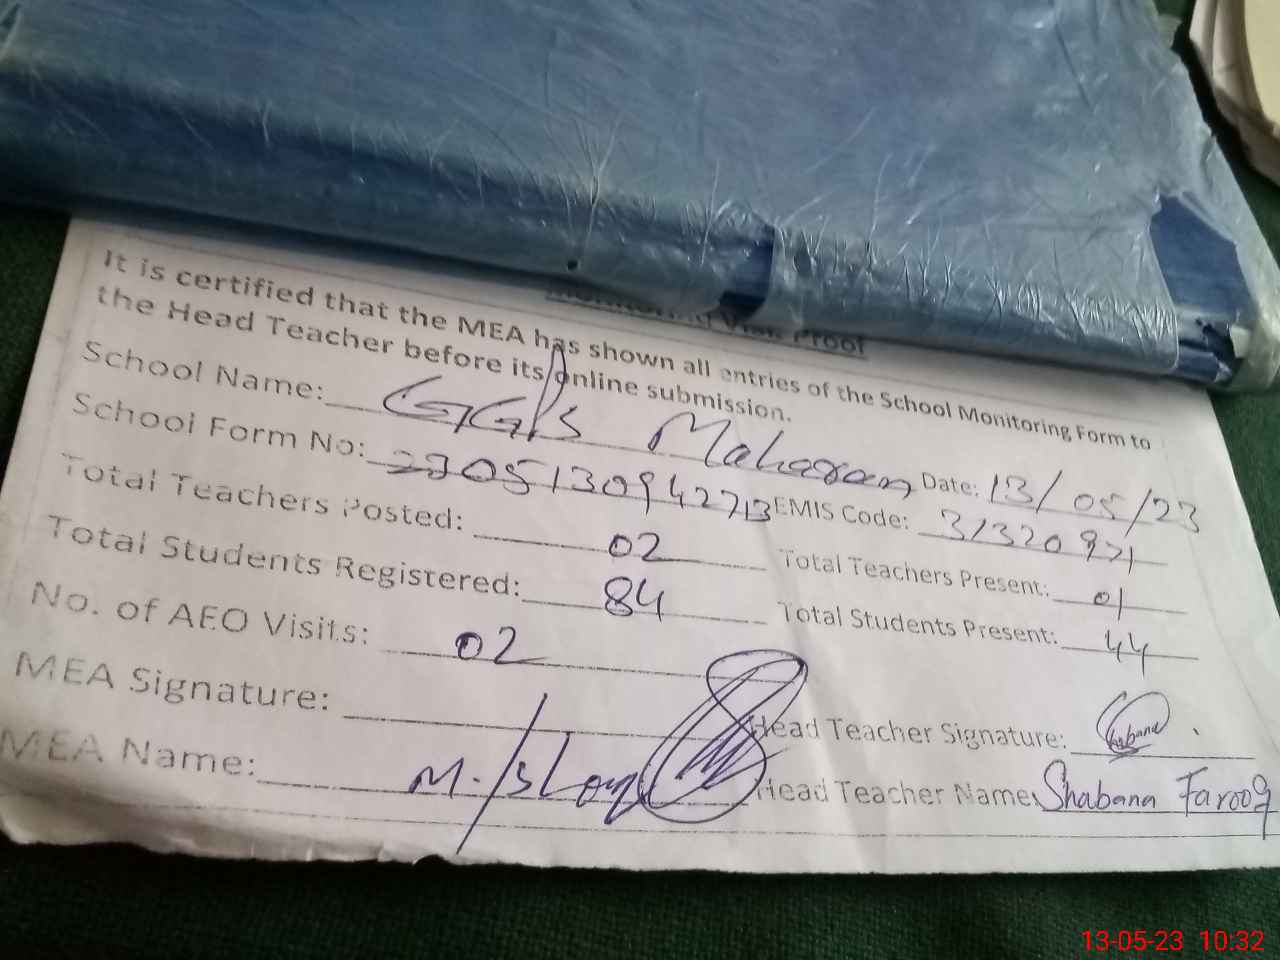 Visit Proof
It is certified that the MEA has shown all entries of the School Monitoring Form to
the Head Teacher before its online submission.
School Name: GGPS Maharan Date: 13/05/23
School Form No: EMIS Code:
Total Teachers Posted: 02 Total Teachers Present: 01
Total Students Registered: 84 Total Students Present: 44
No. of AEO Visits: 02
MEA Signature: Head Teacher Signature: Shabana
MEA Name: Head Teacher Name: Shabana Farooq
13-05-23 10:32